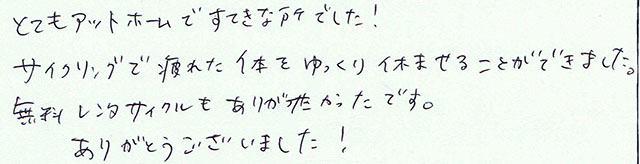 とてもアットホームですてきな所でした！
サイクリングで疲れた体をゆっくり休ませることができました。
無料レンタサイクルもありがたかったです。
ありがとうございました！